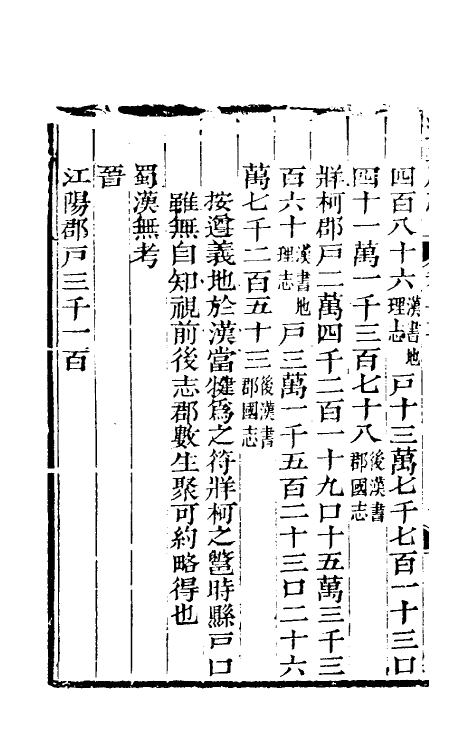 四百八十六漢書地理志戸十三萬七千七百一十三口
四十一萬一千三百七十八後漢書郡國志
牂柯郡戸二萬四千二百一十九口十五萬三千三
百六十漢書地理志戸三萬一千五百二十三口二十六
萬七千二百五十三後漢書郡國志
按遵義地於漢當犍爲之符牂柯之鄨時縣戸口
雖無自知視前後志郡數生聚可約略得也
蜀漢無考
晉
江陽郡戸三千一百